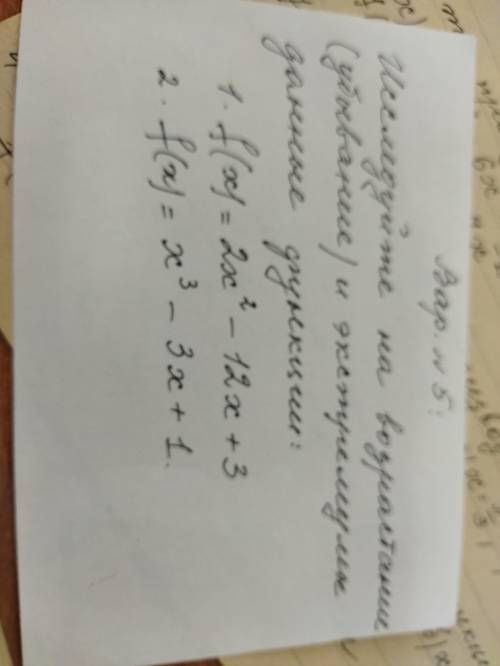 Вар. №5:
Исследуйте на возрастание
(убывание) и экстремумы
данные функции:
1. f(x) = 2x² - 12x + 3
2. f(x) = x³ - 3x + 1.